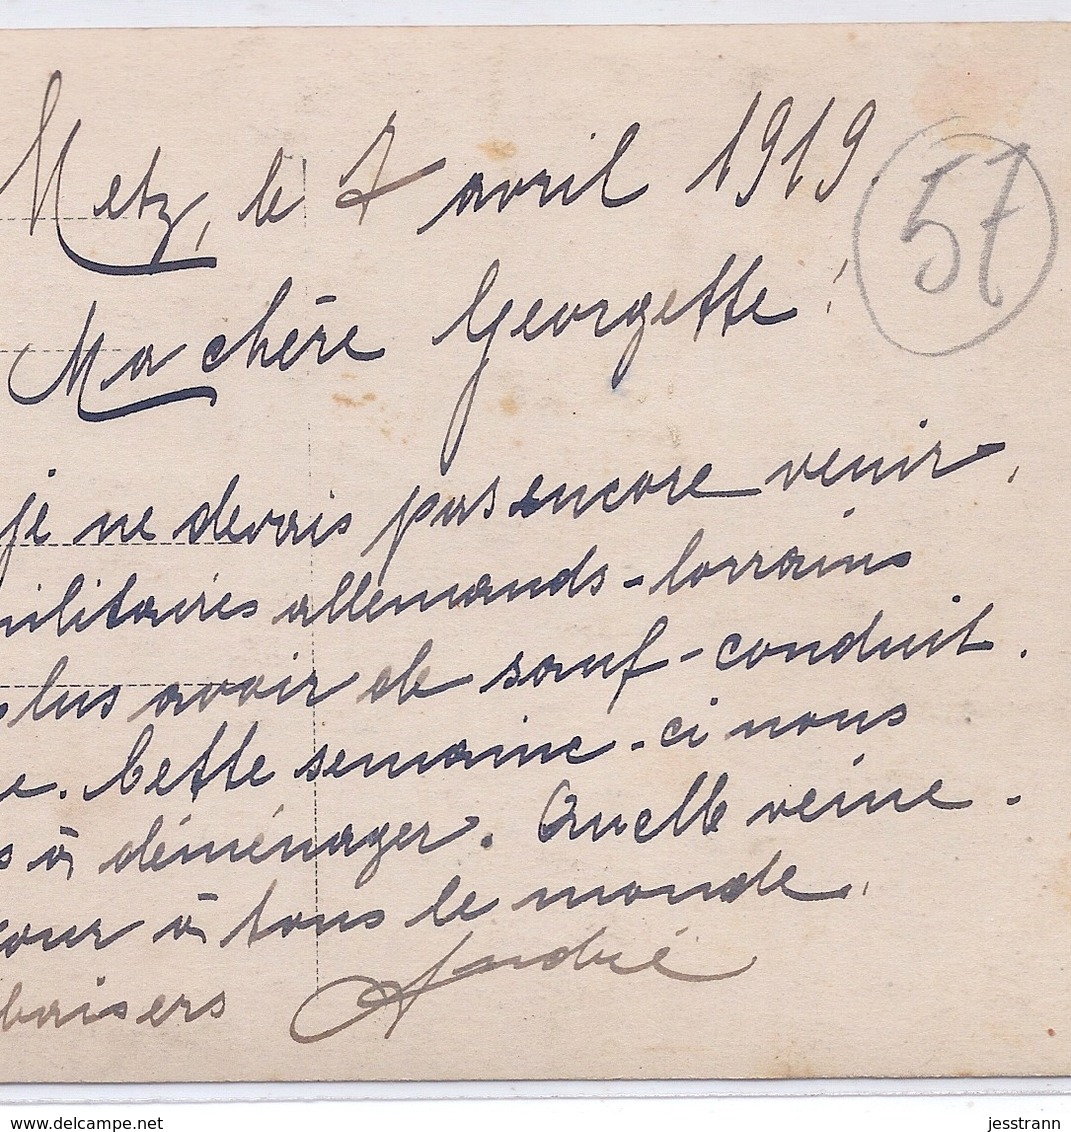 Metz, le 7 avril 1919.
57
Ma chère Georgette !
je ne devais pas encore venir,
militaires allemands-lorrains
plus avoir de sauf-conduit.
e. Cette semaine-ci nous
s à déménager. Quelle veine.
à tous le monde.
baisers André
www.delcampe.net
jesstrann